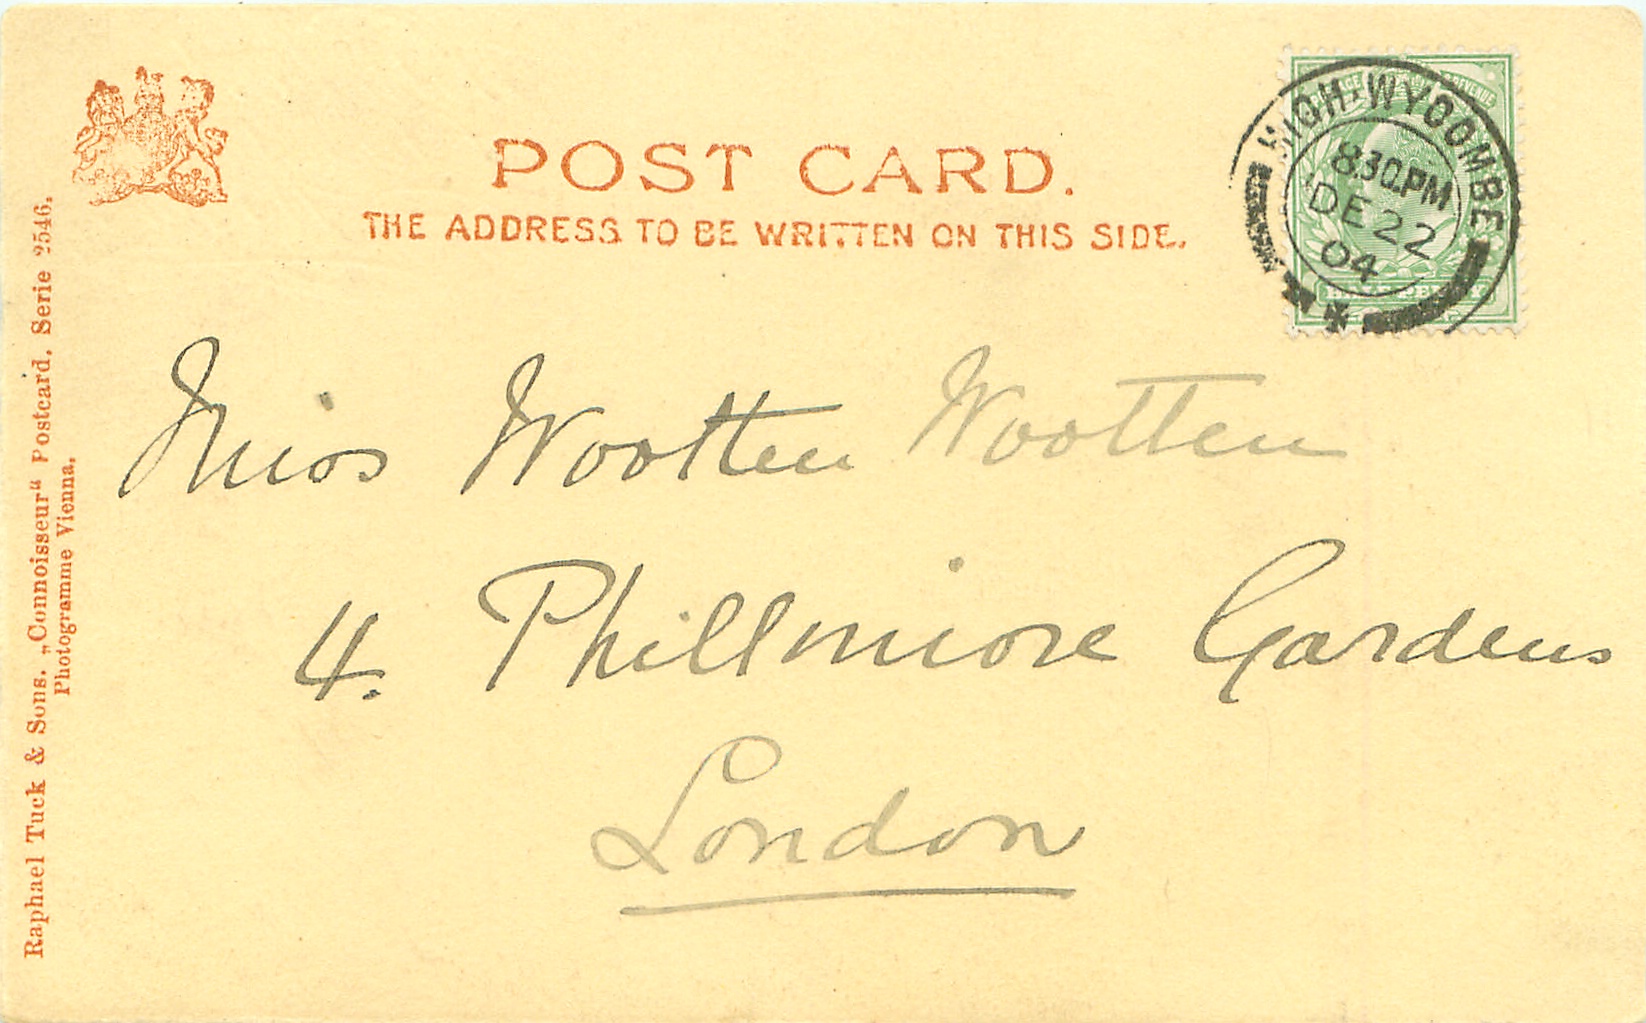 POST CARD.
THE ADDRESS TO BE WRITTEN ON THIS SIDE.
HIGH·WYCOMBE
8.30.PM
DE 22
04
HALFPENNY
Miss Wootten Wootten
4. Phillmore Gardens
London
Raphael Tuck & Sons. „Connoisseur“ Postcard. Serie 2546.
Photogramme Vienna.